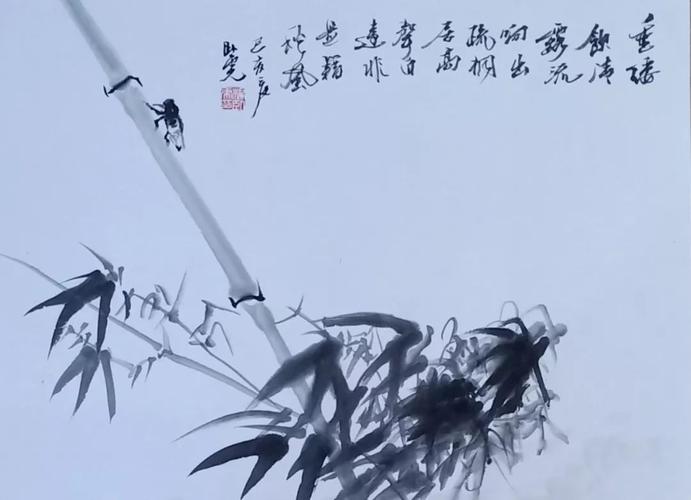 垂緌
飲清
露流
响出
疏桐
居高
聲自
遠非
是藉
秋風
己亥夏